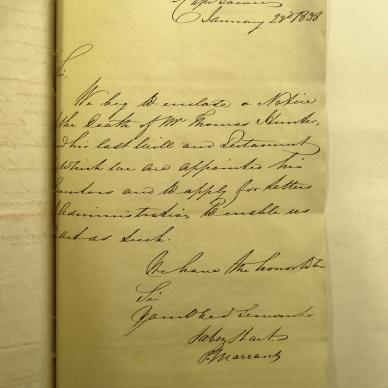 Cape Town
January 22d 1838
Sir,
We beg to enclose a Notice
the Death of Mr Thomas Hunter,
& his last Will and Testament
which we are appointed his
Executors and to apply for Letters
Administration to enable us
act as such.
We have the honor to be
Sir
Your Obed Servants
Jabez Hart
P Marrant